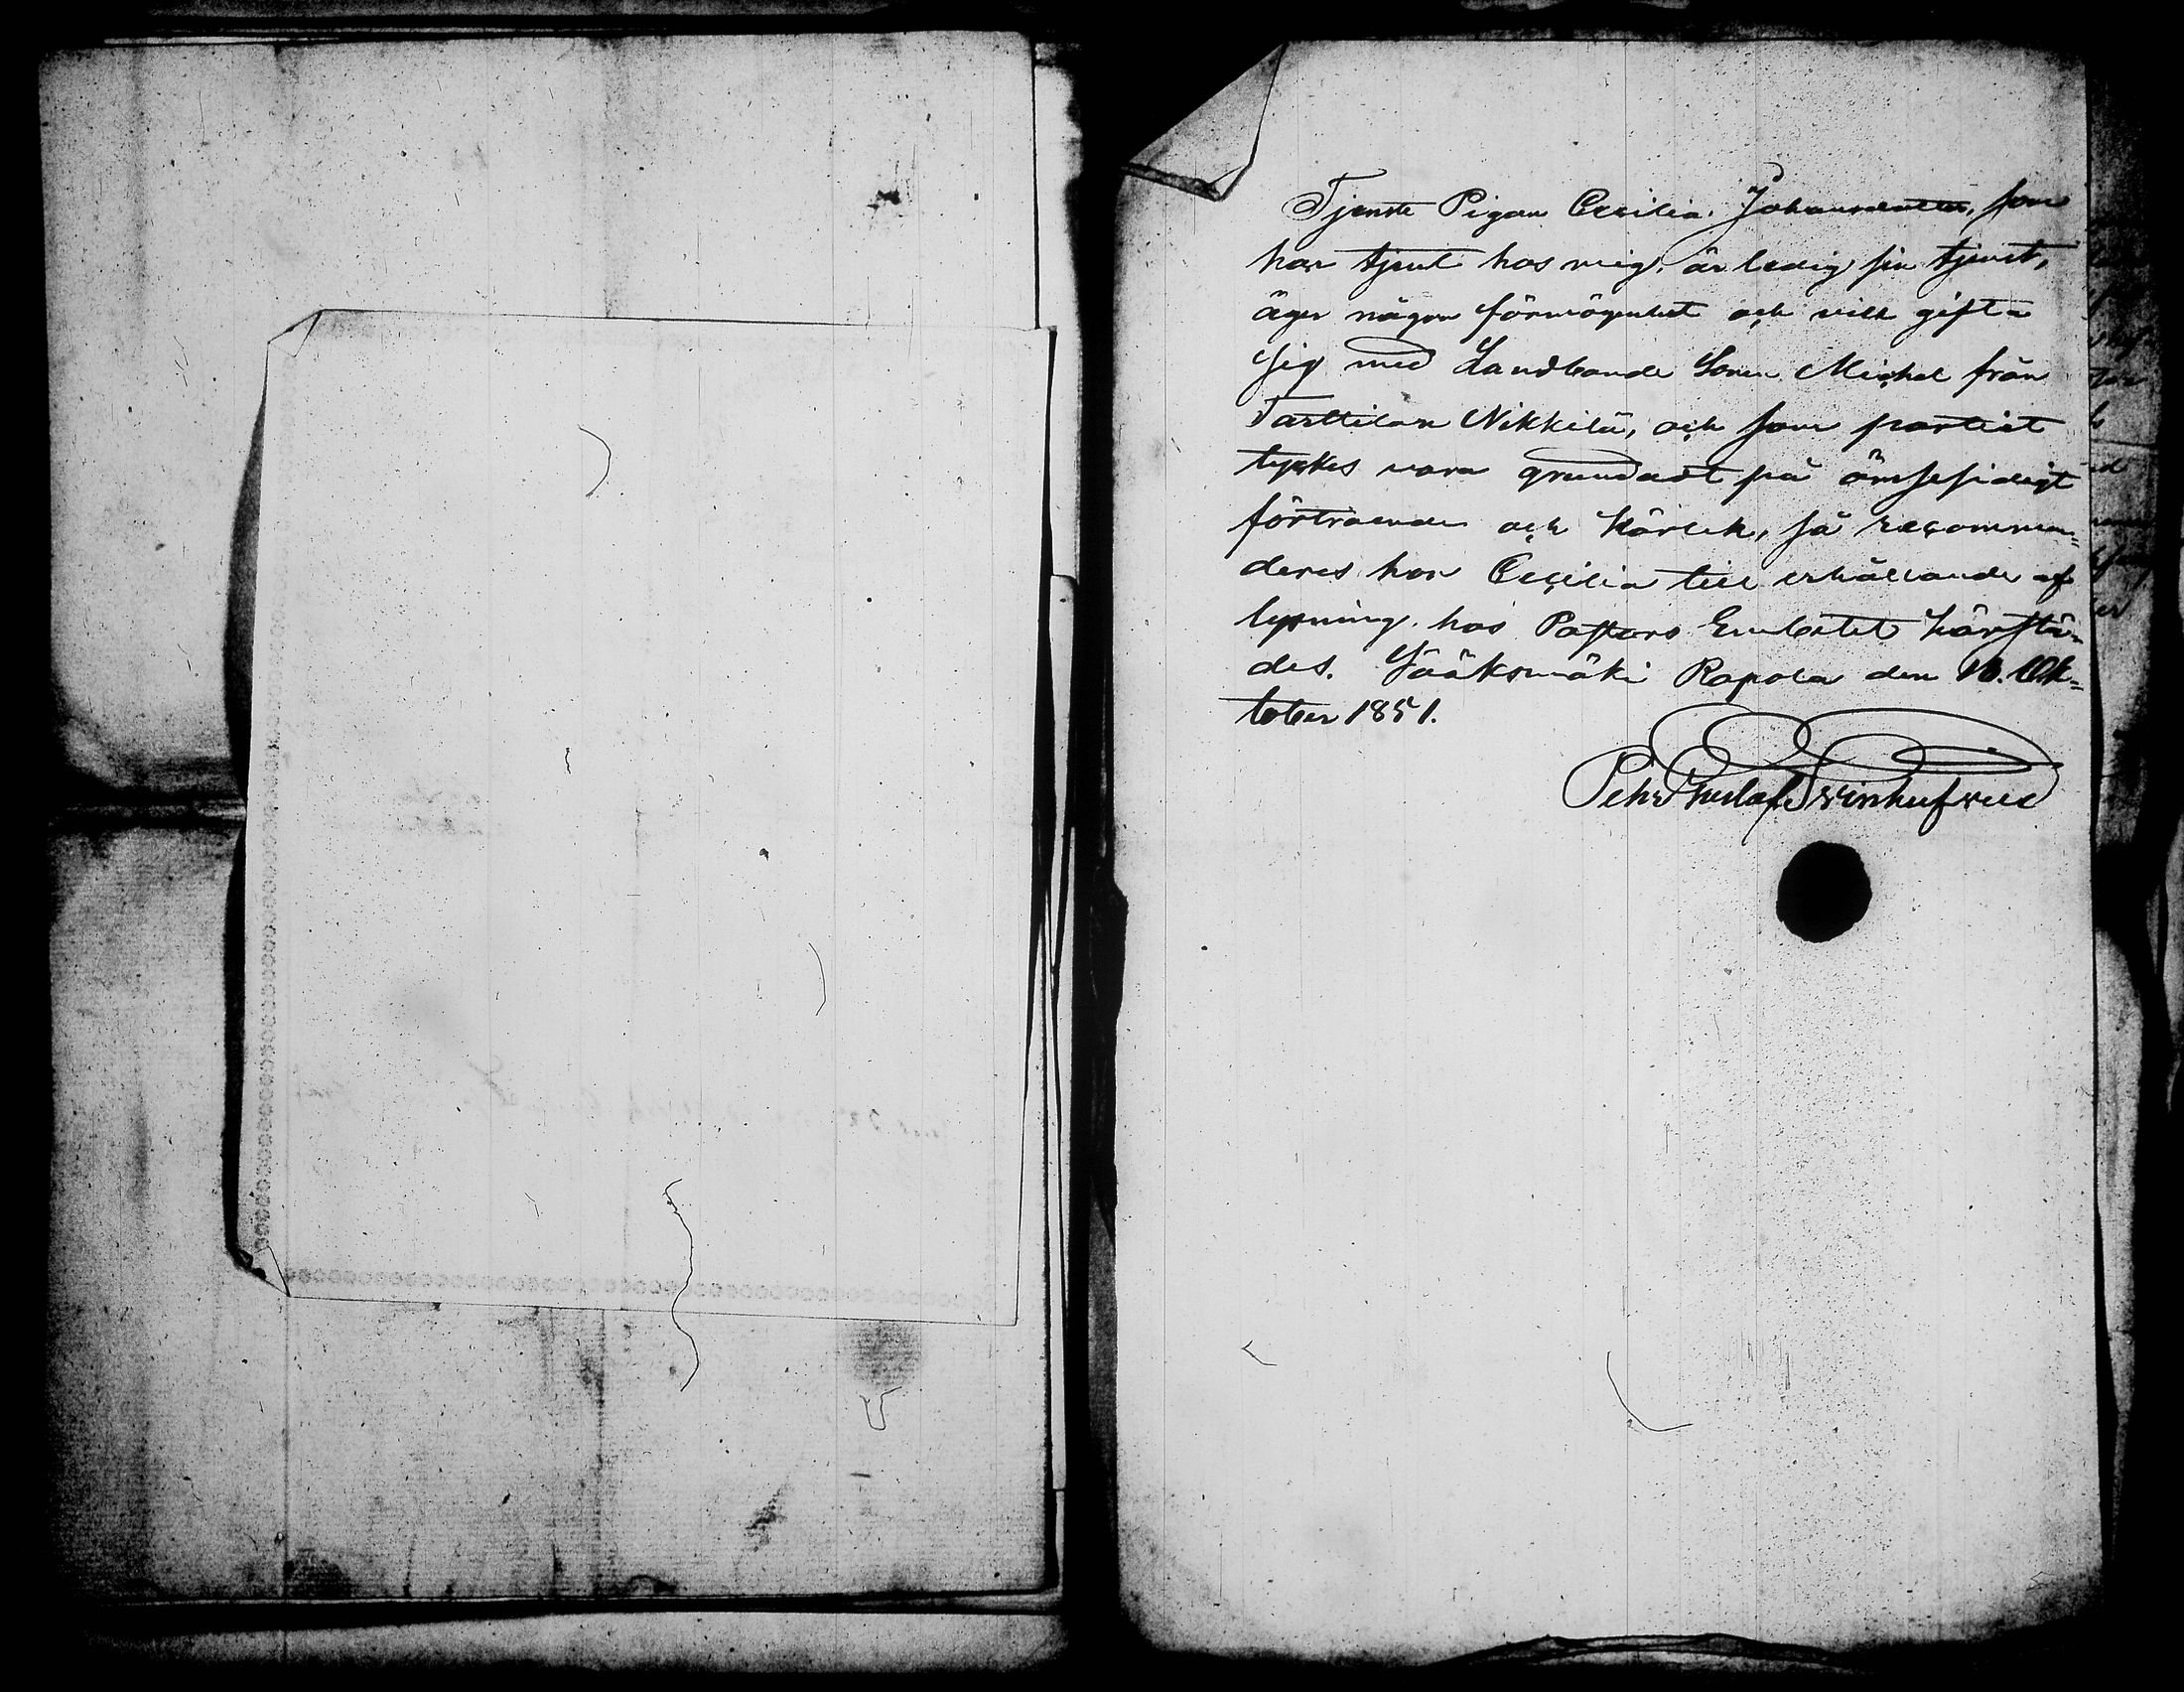 Tjenste Pigan Cecilia Johansdotter, som
har tjent hos mig, är ledig sin tjenst,
äger någon förmögenhet och vill gifta
sig med Landbonde Sonen Michel från
Tarttilan Nikkilä, och som partiet
tyckes vara grundadt på ömsesidigt
förtroende och kärlek, så recommen=
deras hon Cecilia till erhållande af
lysning hos Pastors Embetet härstä=
des. Sääksmäki Rapola den 18. Ok=
tober 1851.
Pehr Gustaf Svinhufvud